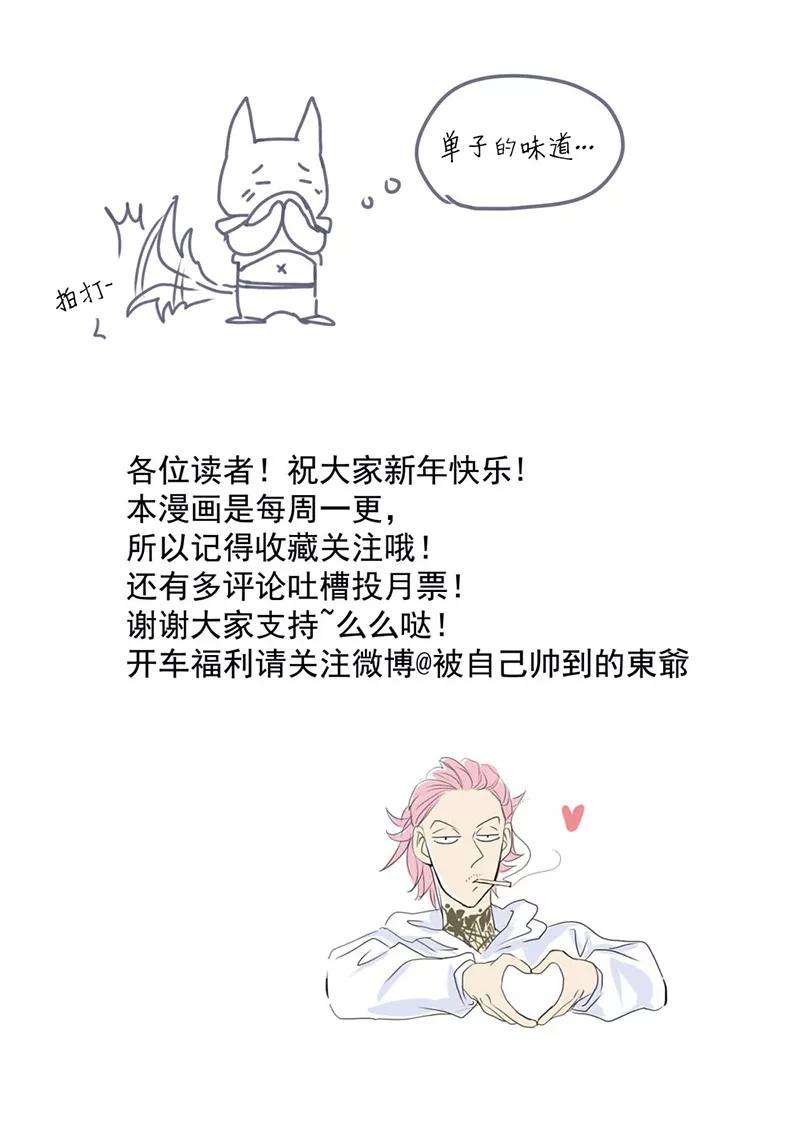 单子的味道…
拍打-
各位读者！祝大家新年快乐！
本漫画是每周一更，
所以记得收藏关注哦！
还有多评论吐槽投月票！
谢谢大家支持~么么哒！
开车福利请关注微博@被自己帅到的東爺